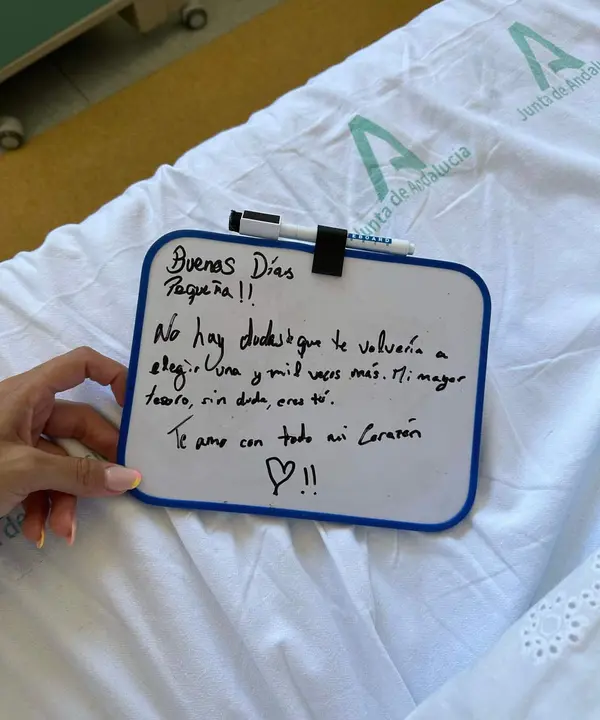 Junta de Andalucía
Junta de Andalucía
EBOARD
Buenos Días
Pequeña!!
No hay dudas de que te volvería a
elegir una y mil veces más. Mi mayor
tesoro, sin duda, eres tú.
Te amo con todo mi Corazón
!!